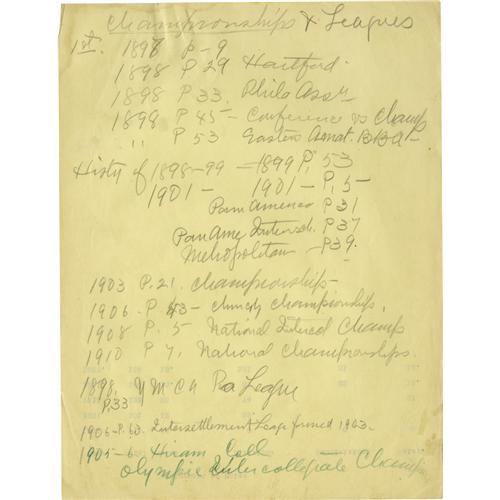 Championships & Leagues
1st. 1898 P-9
1898 P 29 Hartford
1898 P 33. Phila Assn
1898 P 45- Conference vs Champ
" P 53 Eastern Amat. B.B.A-
Histy of 1898-99 - 1899 P, 53
1901 - 1901 - P, 5-
Pam America P 31
Pan Ame, Intersch. P 37
Metropolitan - P39.
1903 P. 21. Championships-
1906. P 43- Church Championships.
1908 P. 5 National Intercol Champ
1910 P 7, National Championships.
1898, Y M C A Pa League
P.33
1906-P. 63. Intersettlement Leage formed 1903.
1905-6 Hiram Coll
Olympic Intercollegiate Champ